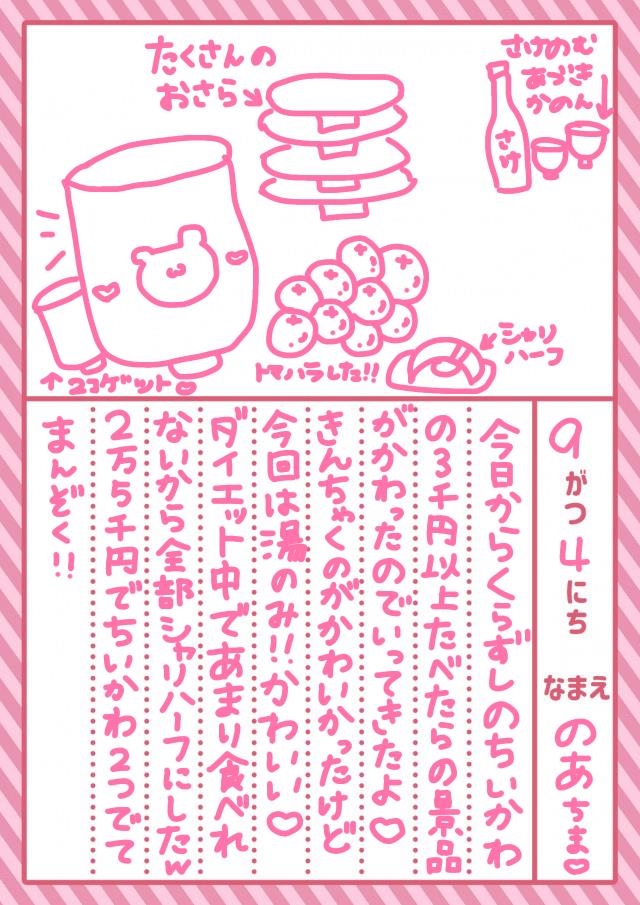 たくさんの
おさら
さけのむ
あづき
かのん
さけ
2コゲット
トマハラした!!
シャリ
ハーフ
9がつ4にち なまえ のあちま♡
今日からくらずしのちいかわ
の3千円以上たべたらの景品
がかわったのでいってきたよ♡
きんちゃくのがかわいかったけど
今回は湯のみ!!かわいい♡
ダイエット中であまり食べれ
ないから全部シャリハーフにしたw
2万5千円でちいかわ2つでて
まんぞく!!